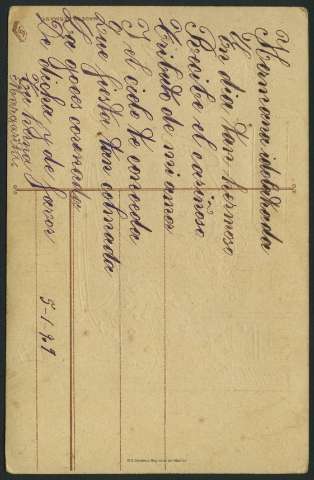 Hermana idolatrada
En dia tan hermoso
Recibe el cariñoso
Tributo de mi amor
Y el cielo te conceda
Que justa tan colmada
La goces coronada
De dicha y de favor
Tu hna
Margarita
5-1-929